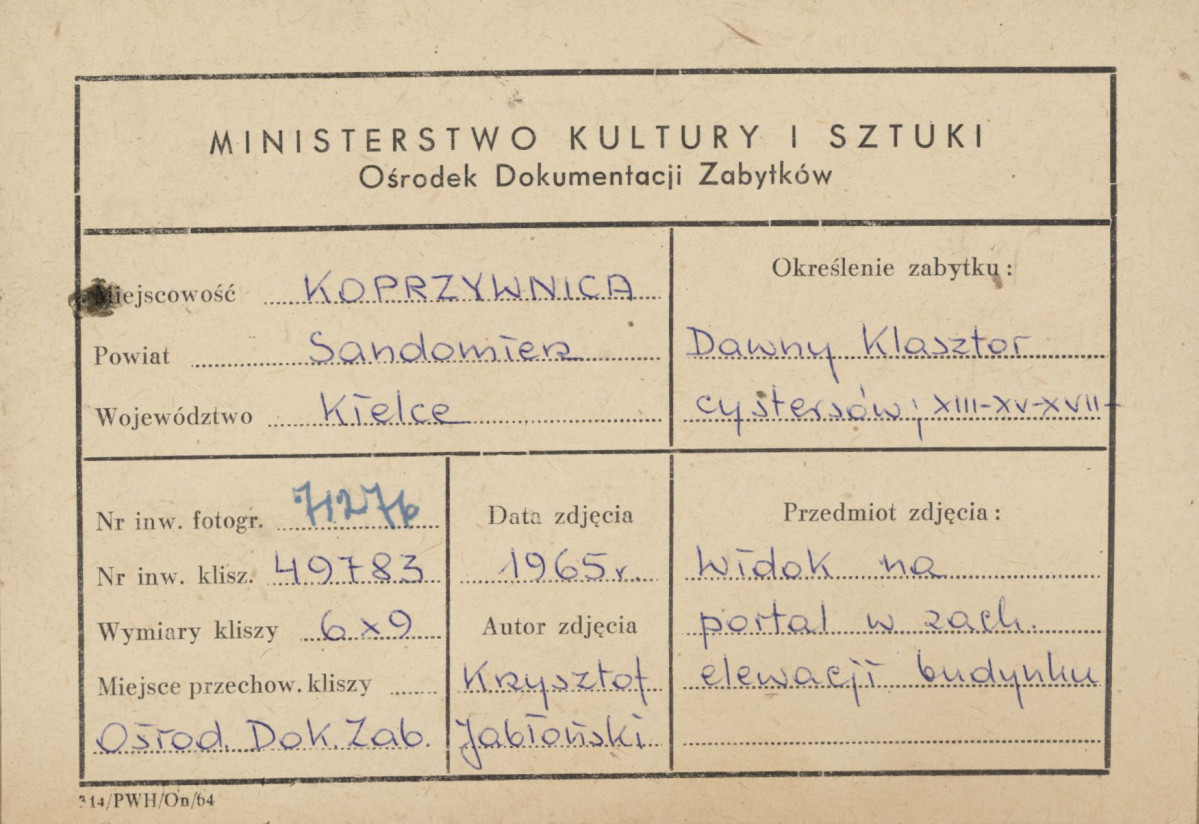 MINISTERSTWO KULTURY I SZTUKI
Ośrodek Dokumentacji Zabytków
Miejscowość KOPRZYWNICA
Powiat Sandomierz
Województwo Kielce
Określenie zabytku:
Dawny Klasztor
cystersów; XIII-XV-XVII-
Nr inw. fotogr. 71276
Nr inw. klisz. 49783
Wymiary kliszy 6x9
Miejsce przechow. kliszy
Ośrod. Dok. Zab.
Data zdjęcia
1965r.
Autor zdjęcia
Krzysztof
Jabłoński
Przedmiot zdjęcia:
Widok na
portal w zach.
elewacji budynku
314/PWH/On/64